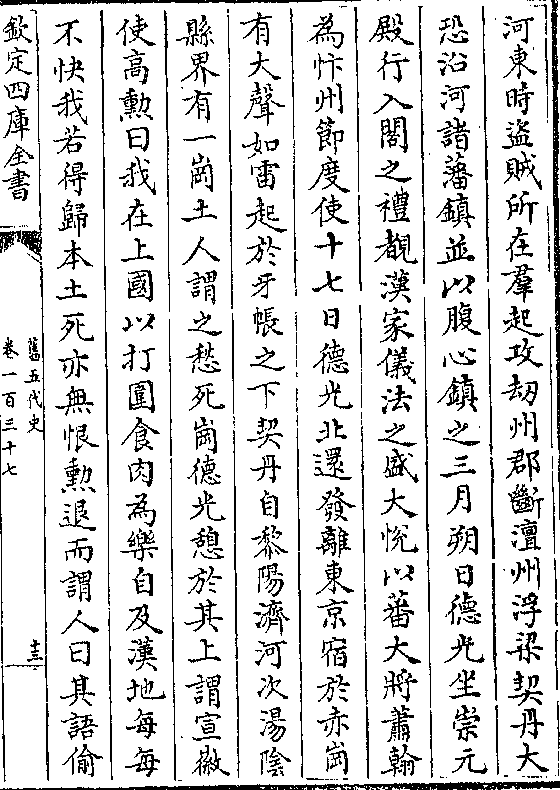 河東時盜賊所在羣起攻刼州郡斷澶州浮梁契丹大
恐沿河諸藩鎮並以腹心鎮之三月朔日德光坐崇元
殿行入閤之禮覩漢家儀法之盛大悅以蕃大將蕭翰
為忭州節度使十七日德光北還發離東京宿於赤崗
有大聲如雷起於牙帳之下契丹自黎陽濟河次湯陰
縣界有一崗土人謂之愁死崗德光憩於其上謂宣徽
使高勲曰我在上國以打圍食肉為樂自及漢地每每
不快我若得歸本土死亦無恨勲退而謂人曰其語偷
欽定四庫全書
舊五代史
卷一百三十七
十三